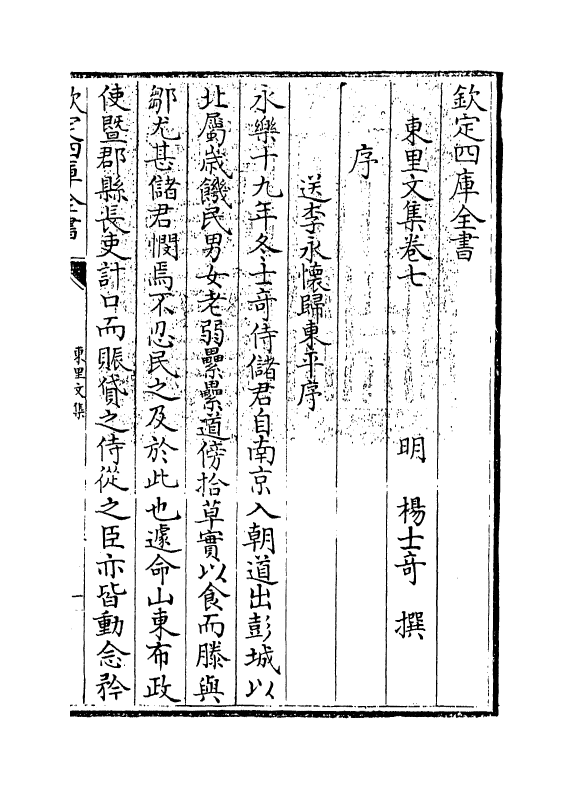 欽定四庫全書
東里文集卷七
明 楊士竒 撰
序
送李永懷歸東平序
永樂十九年冬士竒侍儲君自南京入朝道出彭城以
北屬歳饑民男女老弱纍纍道傍拾草實以食而滕與
鄒尤甚儲君憫焉不忍民之及於此也遽命山東布政
使暨郡縣長吏計口而賑貸之侍從之臣亦皆動念矜
欽定四庫全書
東里文集
一